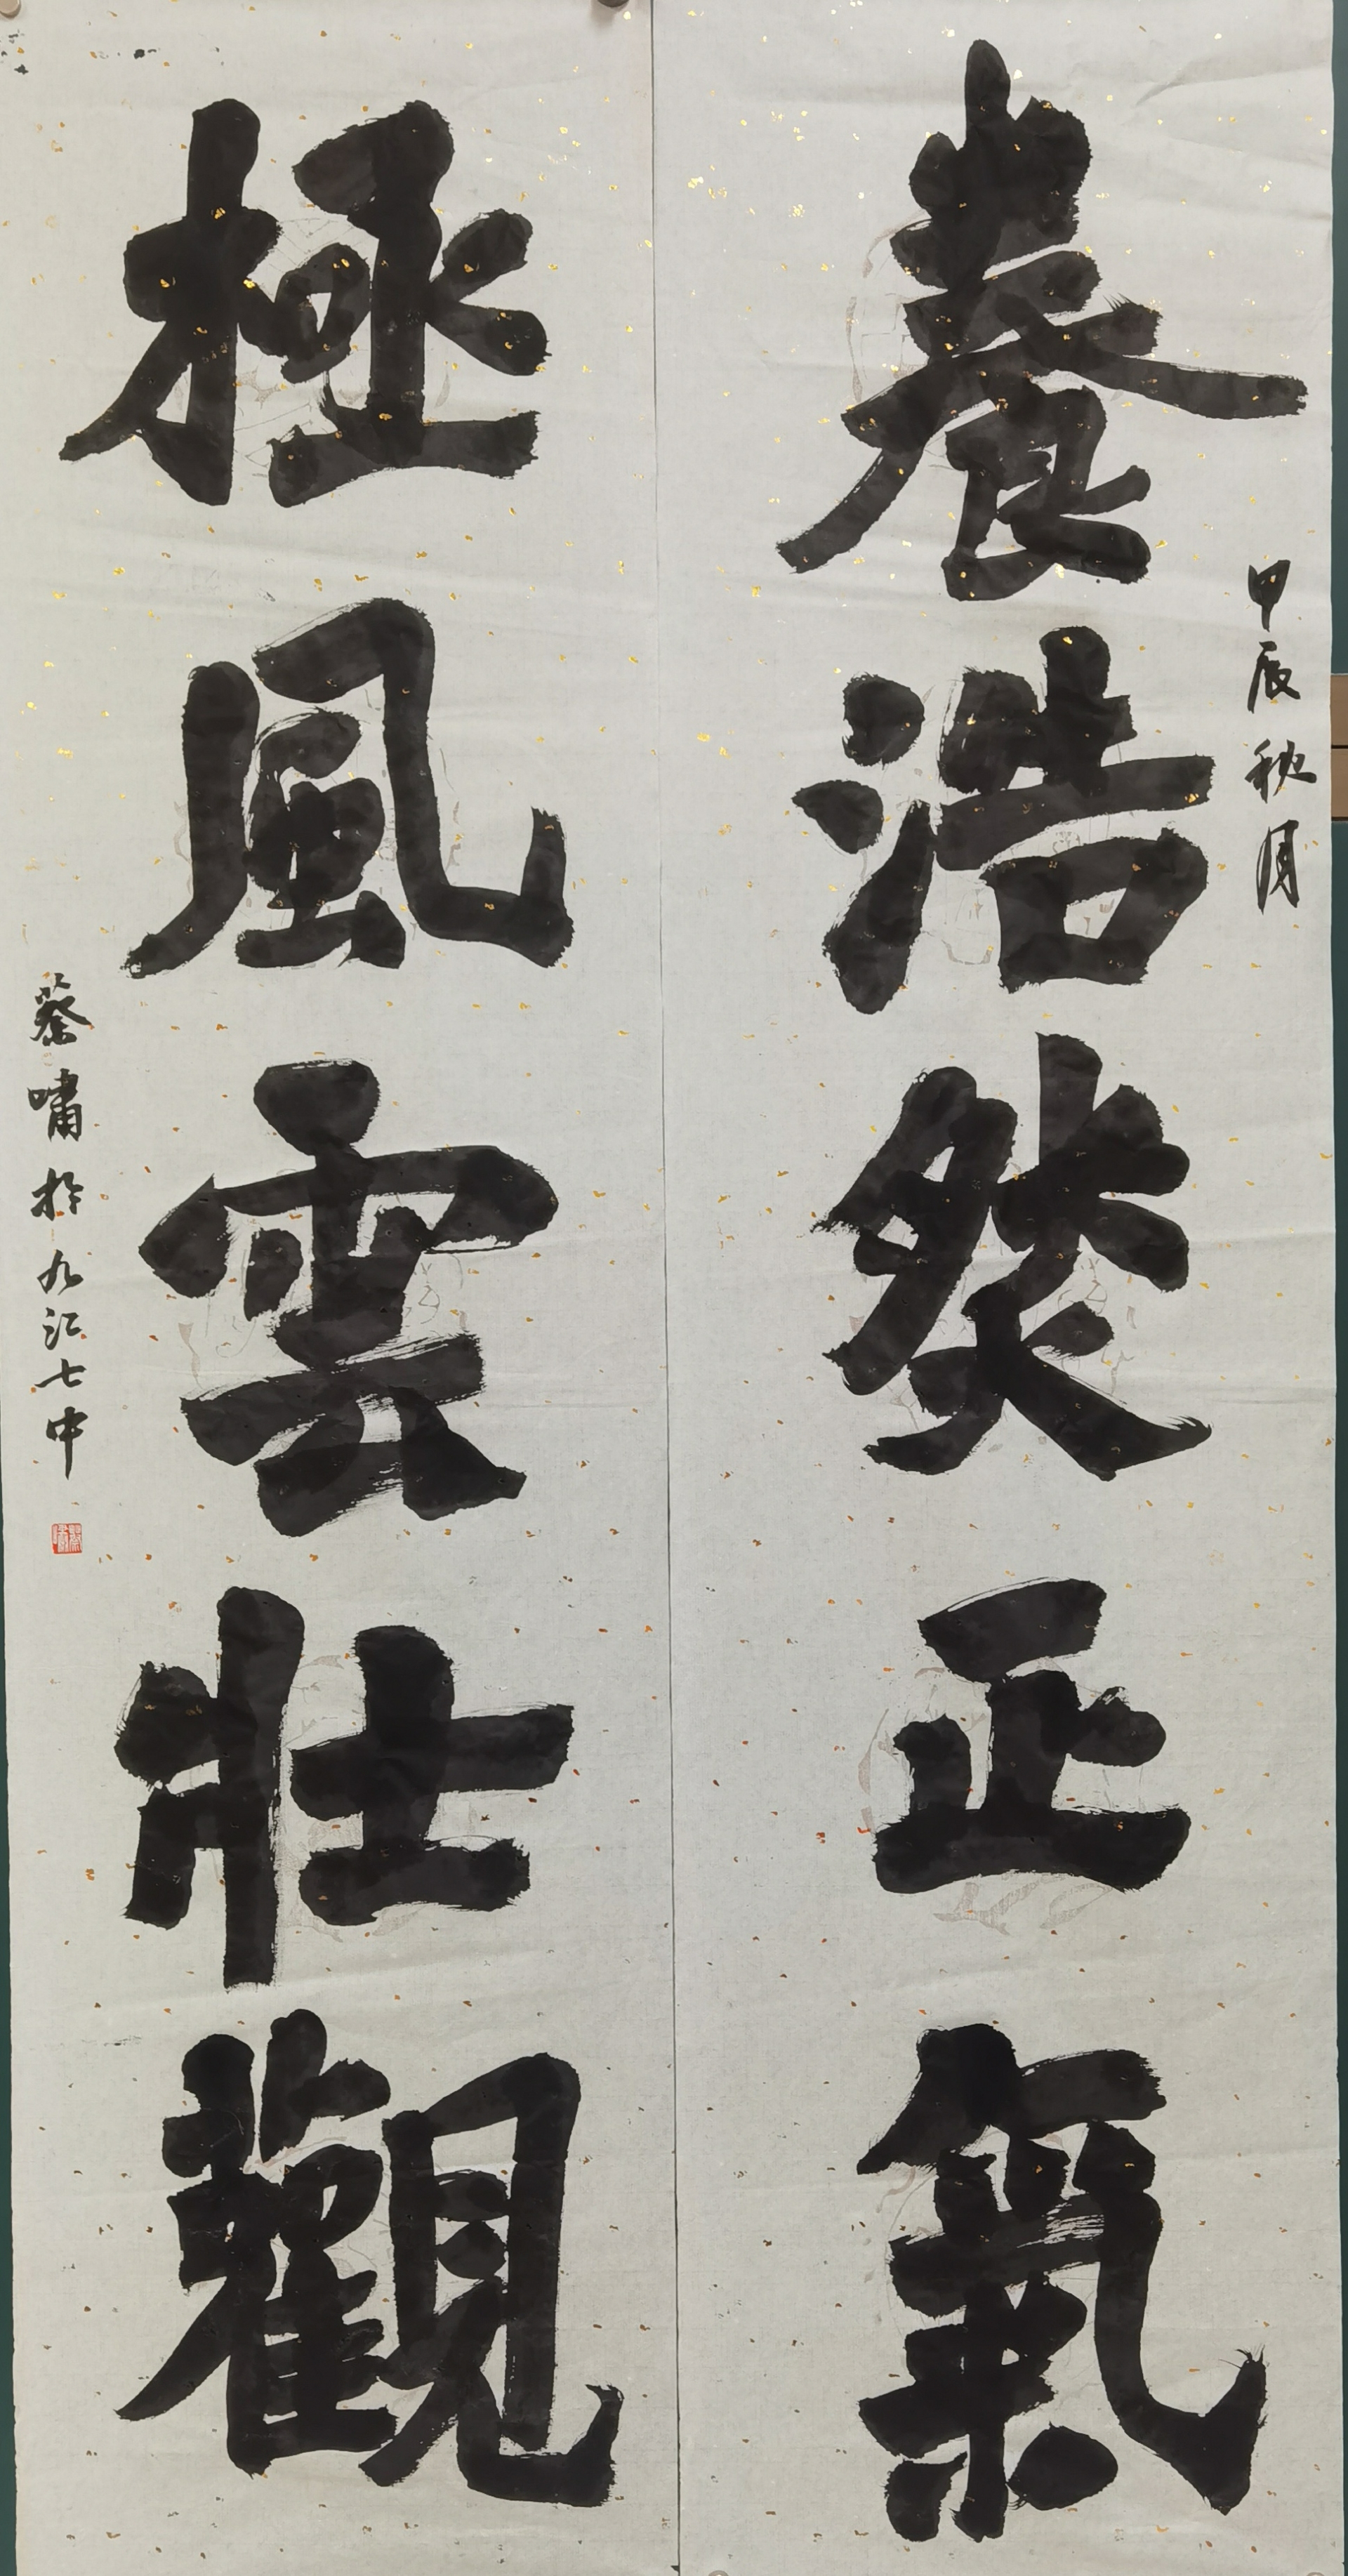 甲辰秋月
養浩然正氣
極風雲壯觀
蔡嘯於九江七中